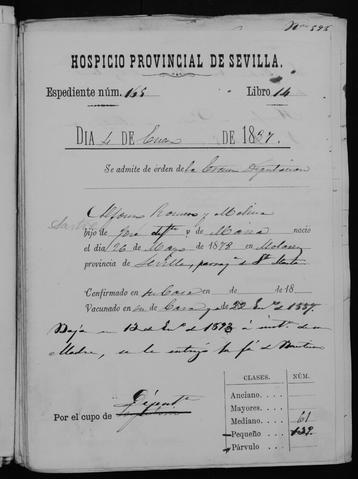 Nº 595
HOSPICIO PROVINCIAL DE SEVILLA.
Expediente núm. 165 Libro 14
DIA 4 DE Enero DE 1887.
Se admite de órden de la Excma Diputacion
Alfonso Romero y Molina
hijo de José y de Maria nació
el dia 26 de Mayo de 1878 en
provincia de Sevilla, parroq.ª de Sta
Confirmado en su Casa en de de 18
Vacunado en su Casa 22 En.º de 1887.
Baja en 12 de En.º de 1893 á de su
Madre, se le entregó su fé de Bautismo
CLASES. NÚM.
Anciano. . .
Mayores. . .
Mediano. . . 61
Pequeño. . . 139
Párvulo. . .
Por el cupo de